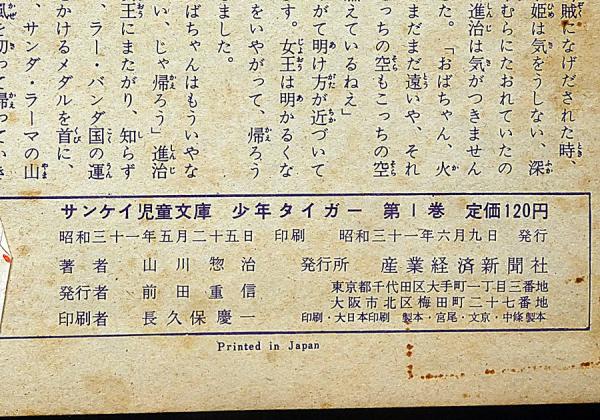 賊になげだされた時、
姫は気をうしない、深
むらにたおれていたの
進治は気がつきません
た。「おばちゃん、火
まだまだ遠いや、それ
っちの空もこっちの空
燃えているねえ」
がて明け方が近づいて
す。女王は明かるくな
をいやがって、帰ろう
ました。
ばちゃんはもういやな
い、じゃ帰ろう」進治
王にまたがり、知らず
、ラー・バンダ国の運
かけるメダルを首に、
、サンダ・ラーマの山
風を切って帰っていき
サンケイ児童文庫 少年タイガー 第1巻 定価120円
昭和三十一年五月二十五日 印刷 昭和三十一年六月九日 発行
著者 山川惣治 発行所 産業経済新聞社
発行者 前田重信 東京都千代田区大手町一丁目三番地
大阪市北区梅田町二十七番地
印刷者 長久保慶一 印刷・大日本印刷 製本・宮尾・文京・中條製本
Printed in Japan